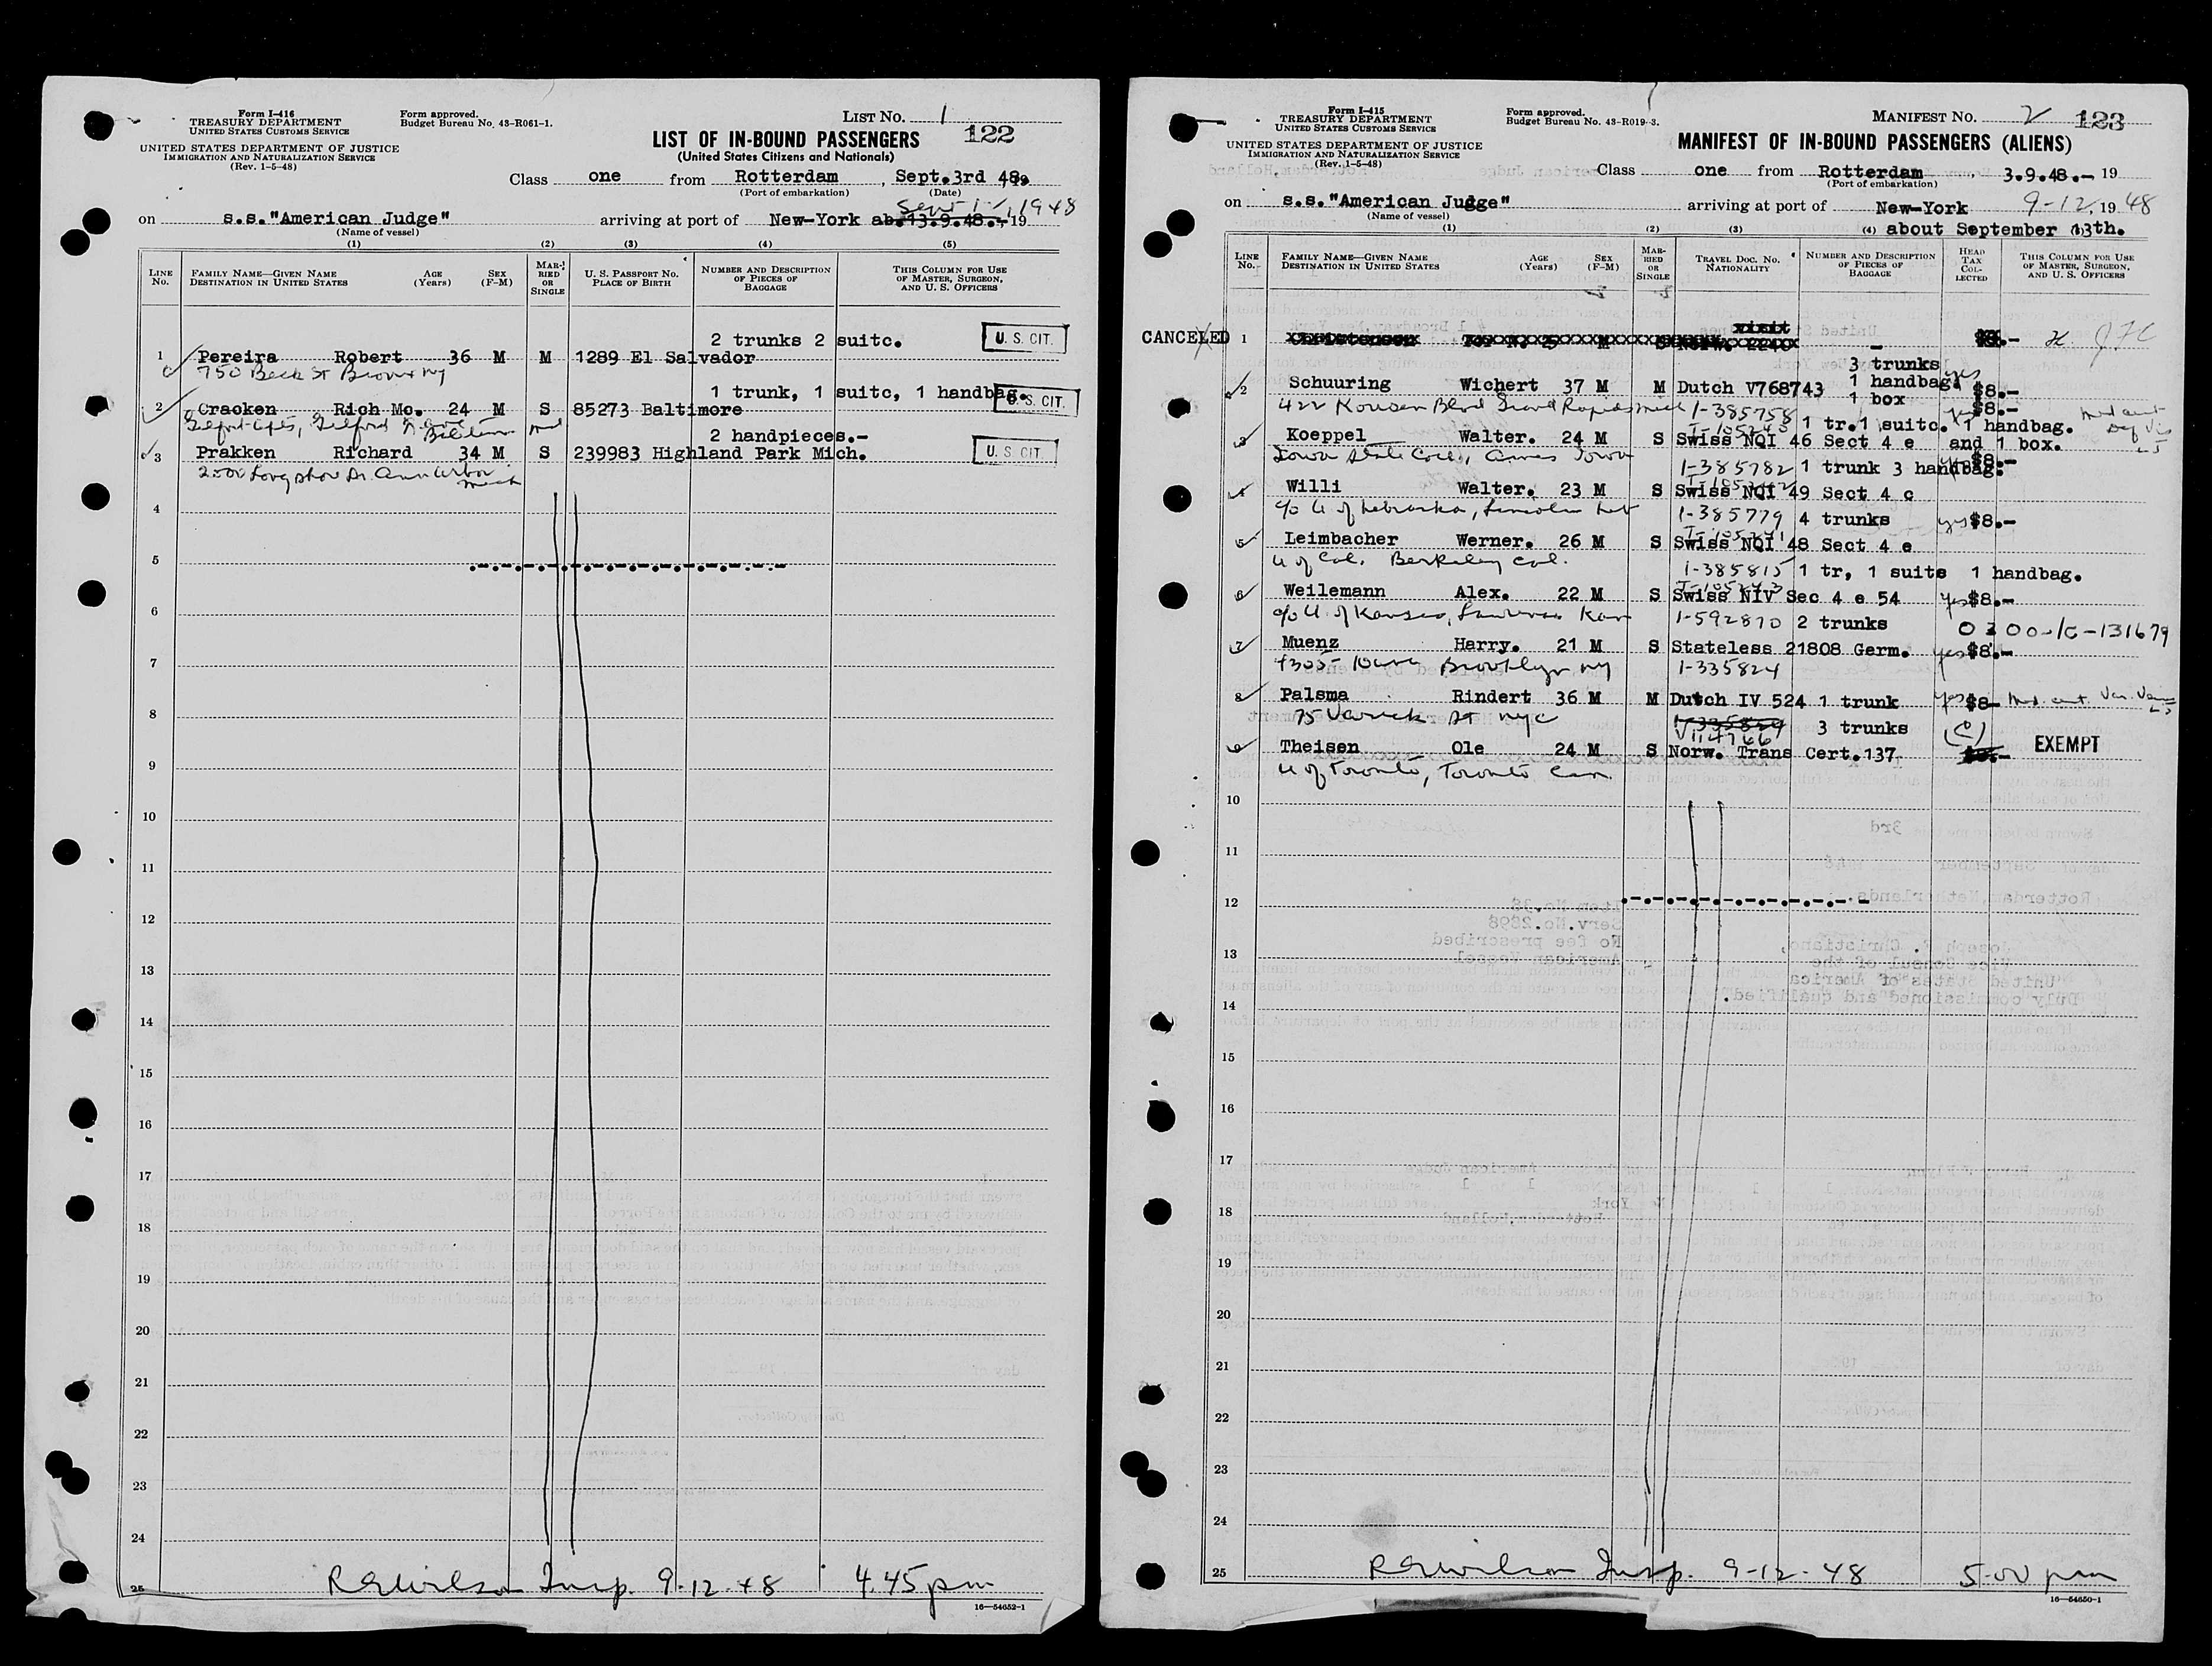 Form I-416
TREASURY DEPARTMENT
UNITED STATES CUSTOMS SERVICE
UNITED STATES DEPARTMENT OF JUSTICE
IMMIGRATION AND NATURALIZATION SERVICE
(Rev. 1-5-48)
Form approved.
Budget Bureau No. 43-R061-1.
LIST No. 1
122
LIST OF IN-BOUND PASSENGERS
(United States Citizens and Nationals)
Class one from Rotterdam, Sept.3rd 48.
(Port of embarkation) (Date)
on s.s."American Judge" arriving at port of New-York ab.13.9.48.-, 19
1948
(Name of vessel)
(1) (2) (3) (4) (5)
LINE No. FAMILY NAME—GIVEN NAME DESTINATION IN UNITED STATES AGE (Years) SEX (F-M) MARRIED OR SINGLE U. S. PASSPORT NO. PLACE OF BIRTH NUMBER AND DESCRIPTION OF PIECES OF BAGGAGE THIS COLUMN FOR USE OF MASTER, SURGEON, AND U. S. OFFICERS
2 trunks 2 suitc. U. S. CIT.
1 Pereira Robert 36 M M 1289 El Salvador
750 Beck St Bronx NY
1 trunk, 1 suitc, 1 handbag. U. S. CIT.
2 Cracken Rich Mc. 24 M S 85273 Baltimore
2 handpieces.- U. S. CIT.
3 Prakken Richard 34 M S 239983 Highland Park Mich.
2000 Longshore Dr. Ann Arbor Mich
4
5
6
7
8
9
10
11
12
13
14
15
16
17
18
19
20
21
22
23
24
25
R E Wilson Insp. 9-12-48 4.45 pm
16—54652-1
Form I-415
TREASURY DEPARTMENT
UNITED STATES CUSTOMS SERVICE
UNITED STATES DEPARTMENT OF JUSTICE
IMMIGRATION AND NATURALIZATION SERVICE
(Rev. 1-5-48)
Form approved.
Budget Bureau No. 43-R019-3.
MANIFEST No. 2 123
MANIFEST OF IN-BOUND PASSENGERS (ALIENS)
Class one from Rotterdam 3.9.48.- 19
(Port of embarkation)
on s.s."American Judge" arriving at port of New-York 9-12, 1948
(Name of vessel)
(1) (2) (3) (4) about September 13th.
LINE No. FAMILY NAME—GIVEN NAME DESTINATION IN UNITED STATES AGE (Years) SEX (F-M) MARRIED OR SINGLE TRAVEL DOC. NO. NATIONALITY NUMBER AND DESCRIPTION OF PIECES OF BAGGAGE HEAD TAX COLLECTED THIS COLUMN FOR USE OF MASTER, SURGEON, AND U. S. OFFICERS
visit
CANCELED 1
3 trunks yes
2 Schuuring Wichert 37 M M Dutch V768743 1 handbag. $8.-
1 box $8.-
1-385758
1 tr.1 suitc. 1 handbag.
3 Koeppel Walter. 24 M S Swiss NQI 46 Sect 4 e and 1 box.
Iowa State Coll., Ames Iowa
1-385782 1 trunk 3 handbag. $8.-
4 Willi Walter. 23 M S Swiss NQI 49 Sect 4 c
c/o U of Nebraska, Lincoln Neb
1-385779 4 trunks yes $8.-
5 Leimbacher Werner. 26 M S Swiss NQI 48 Sect 4 e
U of Cal. Berkeley Cal.
1-385815 1 tr, 1 suite 1 handbag.
6 Weilemann Alex. 22 M S Swiss NIV Sec 4 e 54 yes $8.-
c/o U. of Kansas, Lawrence Kan
1-592870 2 trunks 0300-K-131679
7 Muenz Harry. 21 M S Stateless 21808 Germ. yes $8.-
Brooklyn NY 1-335824
8 Palsma Rindert 36 M M Dutch IV 524 1 trunk yes $8-
75 Varick St NYC
3 trunks (C)
9 Theisen Ole 24 M S Norw. Trans Cert.137 EXEMPT
U of Toronto, Toronto Can.
10
11
12
13
14
15
16
17
18
19
20
21
22
23
24
25
R E Wilson Insp. 9-12-48 5.00 pm
16—54650-1